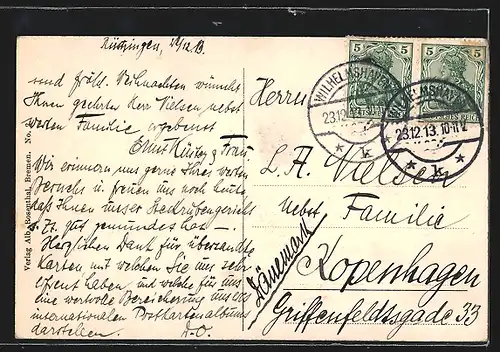 Rüstringen, 22/12 13.
und fröhl. Weihnachten wünscht
Ihnen geehrter Herr Nielsen nebst
werten Familie ergebenst
Ernst & Frau
Wir erinnern uns gerne Ihres werten
Besuchs u. freuen uns noch heute
daß Ihnen unser Steckrübengericht
s. Zt. gut gemundet hat. —
Herzlichen Dank für übersandte
Karten mit welchen Sie uns sehr
erfreut haben und welche für uns
eine wertvolle Bereicherung unseres
internationalen Postkartenalbums
darstellen. D. O.
Verlag Alb. Rosenthal, Bremen. No.
Herrn
L. A. Nielsen
nebst Familie
Kopenhagen
(Dänemark)
Griffenfeldtsgade 33
5 5 5 5
DEUTSCHES REICH
WILHELMSHAVEN
23.12.13. 10-11
* k *
WILHELMSHAVEN
23.12.13. 10-11
* k *